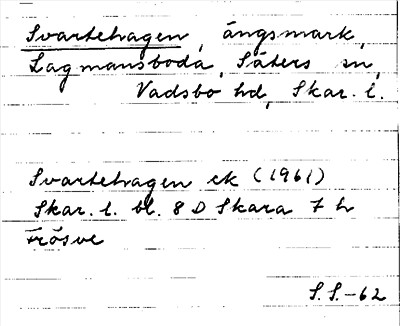 Svartehagen, ängsmark,
Lagmansboda, Säters sn,
Vadsbo hd, Skar. l.
Svartehagen ek (1961)
Skar. l. bl. 8 D Skara 7 h
Frösve
S.S.-62